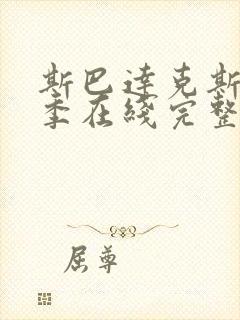 斯巴達克斯
季在綫完整
屈尊